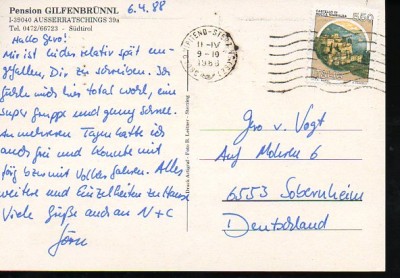 Pension GILFENBRÜNNL
I-39040 AUSSERRATSCHINGS 39a
Tel. 0472/66723 - Südtirol
6.4.88
Hallo Gero!
Mir ist leider relativ spät ein-
gefallen, Dir zu schreiben. Ich
fühle mich hier total wohl, eine
super Gruppe und genug Schnee.
An mehreren Tagen hatte ich
auch frei und konnte mit
Jörg bzw. mit Volker fahren. Alles
weitere und Einzelheiten zu Hause
Viele Grüße auch an N+C
Jörn
II-IV
9-10
1988
550
Gero v. Vogt
Auf Mohren 6
6553 Sobernheim
Deutschland